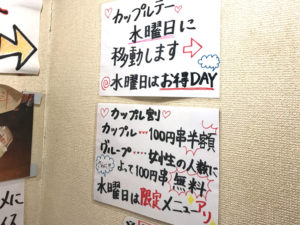 カップルデー
水曜日に
移動します
水曜日はお得DAY
カップル割り
カップル…100円串半額
グループ……女性の人数に
よって100円串無料
水曜日は限定メニューアリ
メに